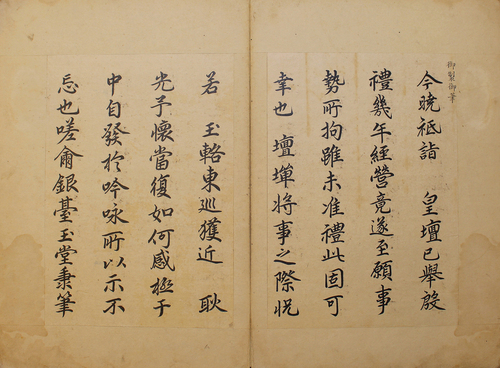 御製御筆
今曉祗詣　皇壇已舉殷
禮幾年經營竟遂至願事
勢所拘雖未准禮此固可
幸也　壇墠將事之際怳
若　玉輅東巡獲近　耿
光予懷當復如何感極于
中自發於吟咏所以示不
忘也嗟爾銀臺玉堂秉筆